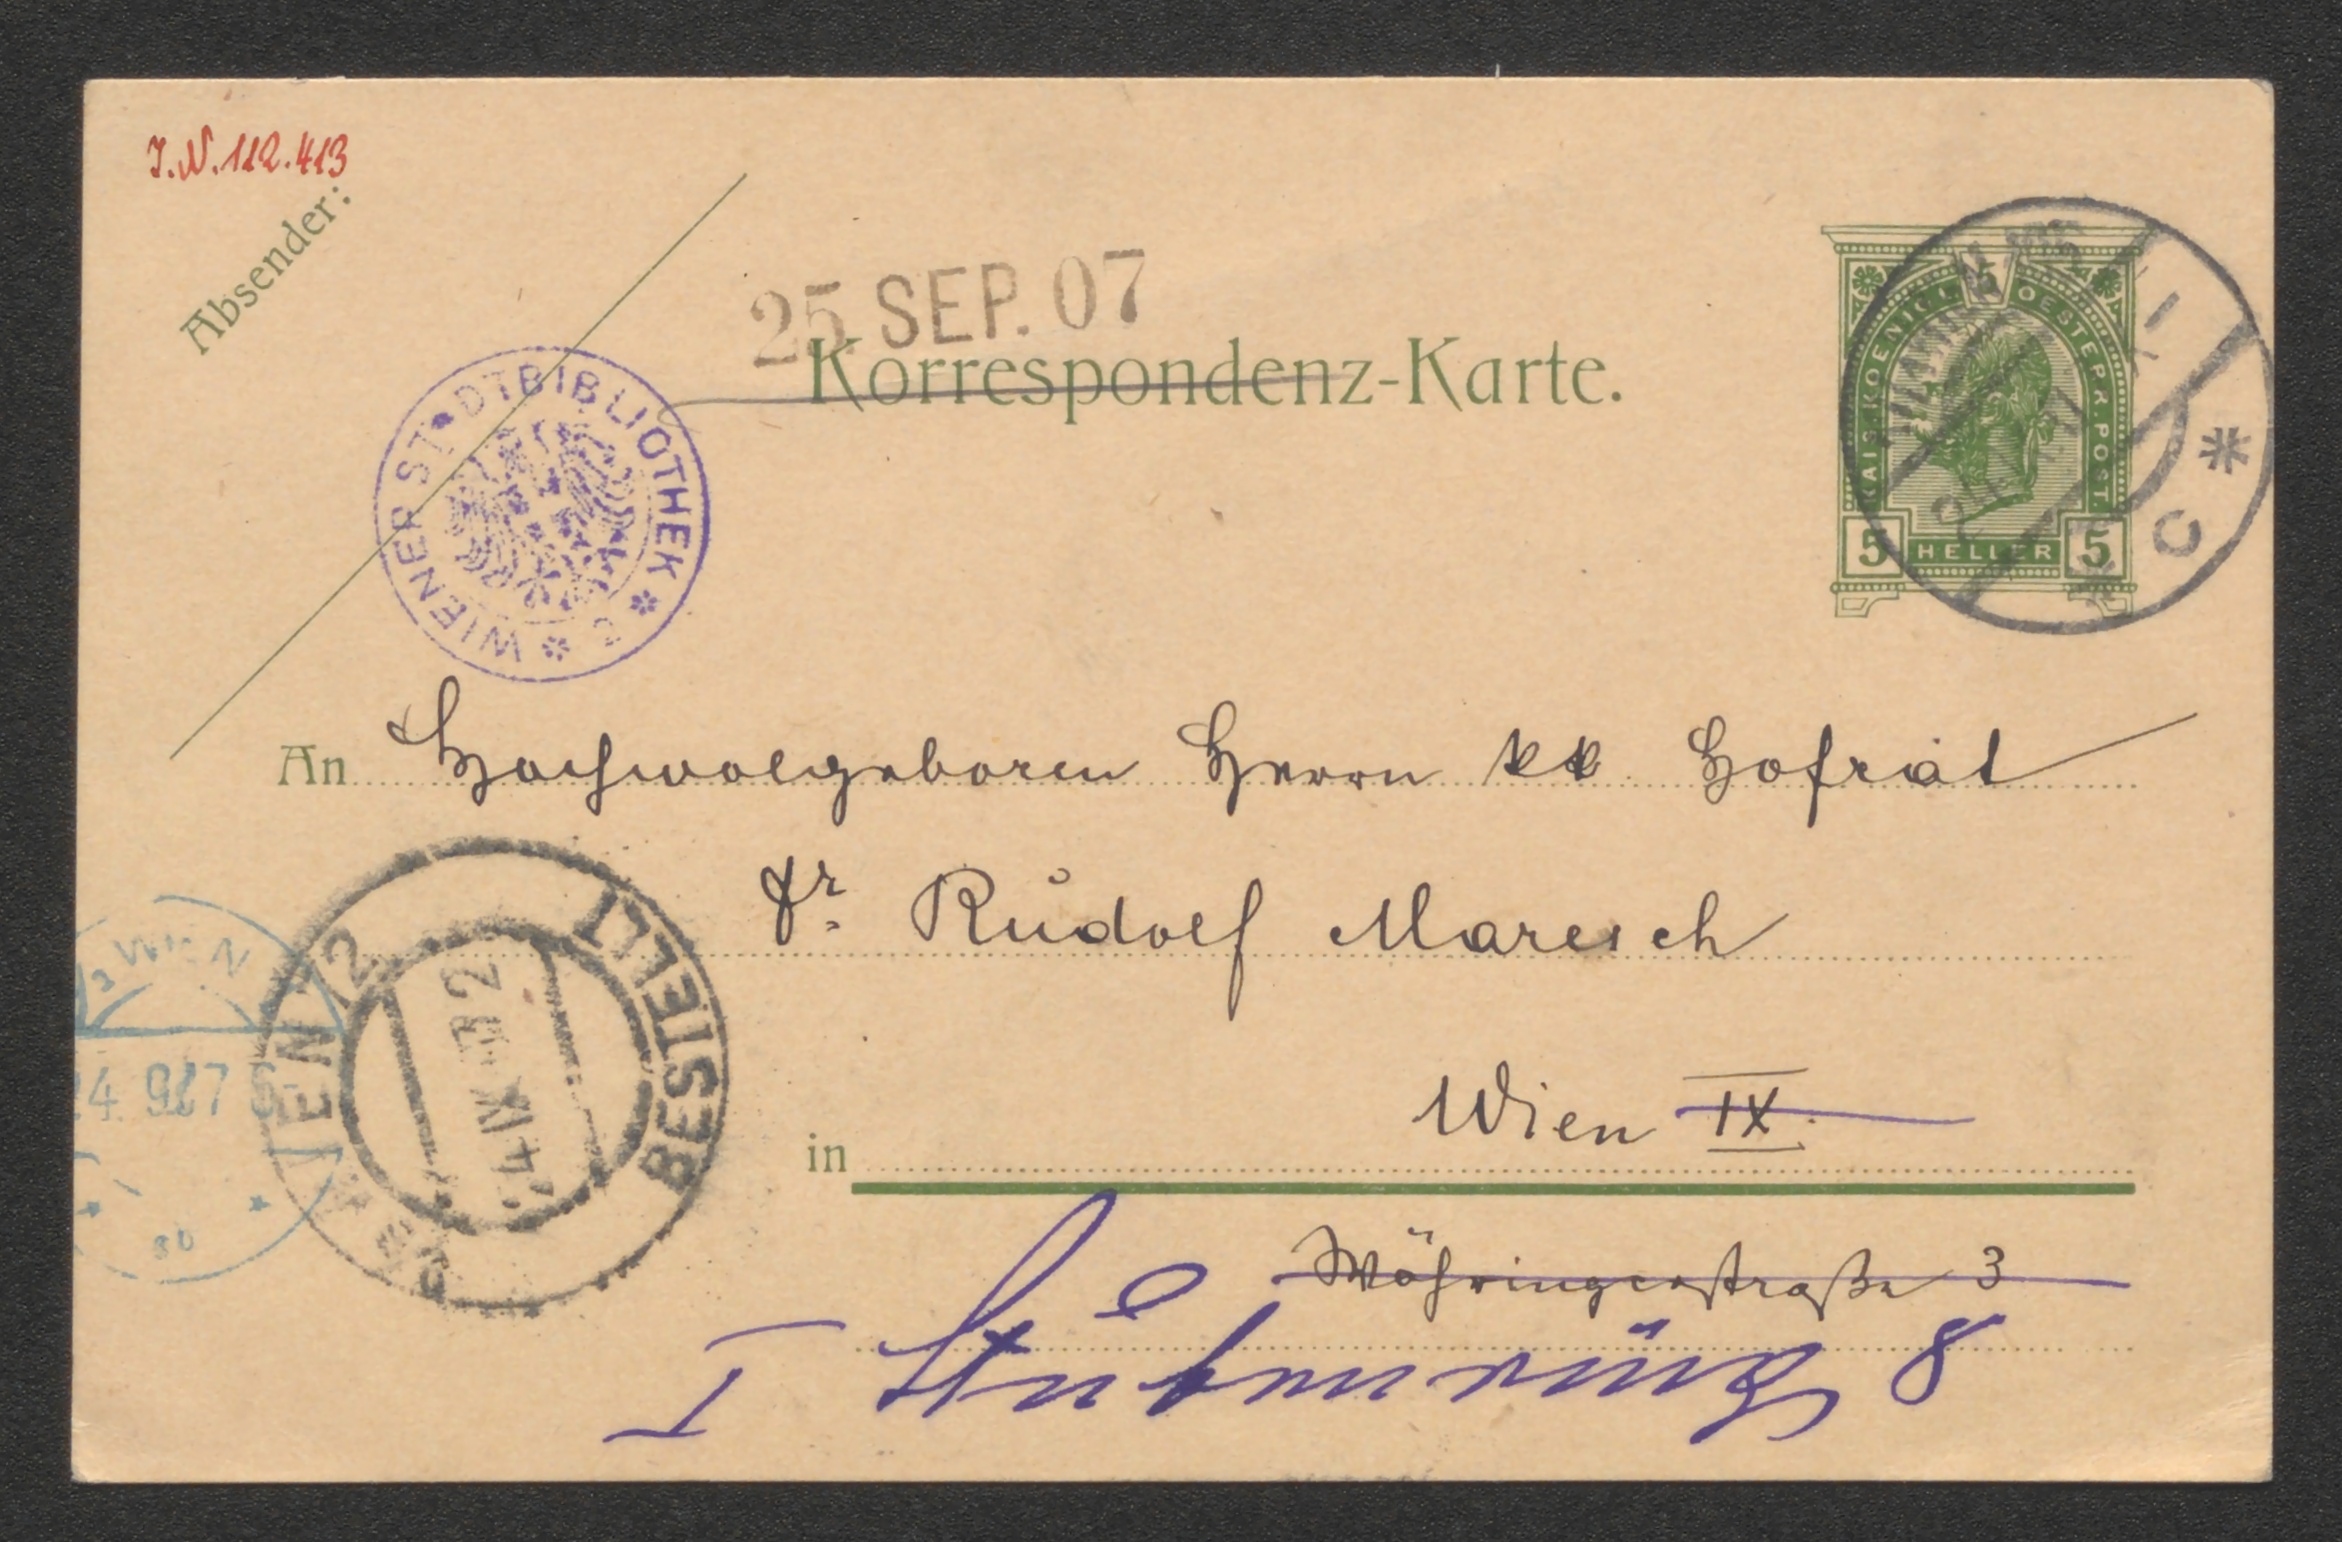 J.N. 112.413
Absender:
25 SEP. 07
Korrespondenz-Karte.
WIENER STADTBIBLIOTHEK
KAIS. KOENIGL. OESTERR. POST.
5 HELLER 5
An Hochwolgeboren Herrn kk Hofrat
Dr. Rudolf Maresch
WIEN
BESTELLT
in Wien IX.
Währingerstraße 3
I Stubenring 8